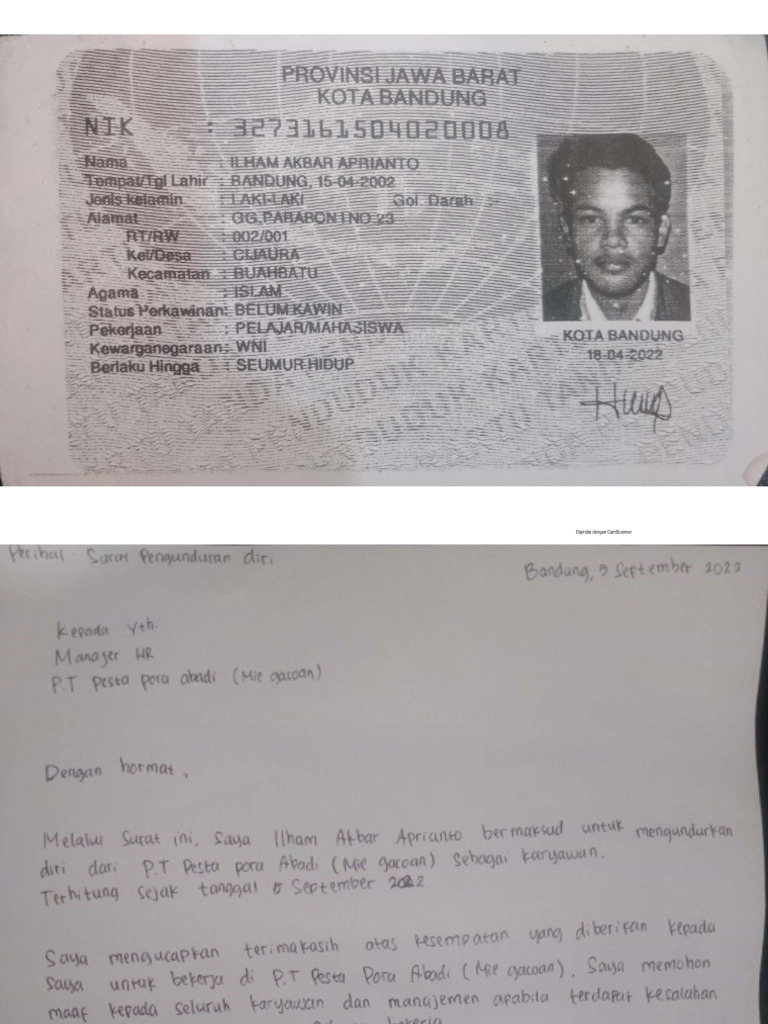 PROVINSI JAWA BARAT
KOTA BANDUNG
NIK : 3273161504020008
Nama : ILHAM AKBAR APRIANTO
Tempat/Tgl Lahir : BANDUNG, 15-04-2002
Jenis kelamin : LAKI-LAKI Gol. Darah :-
Alamat : GG.PARABON I NO.23
RT/RW : 002/001
Kel/Desa : CIJAURA
Kecamatan : BUAHBATU
Agama : ISLAM
Status Perkawinan: BELUM KAWIN
Pekerjaan : PELAJAR/MAHASISWA
Kewarganegaraan: WNI
Berlaku Hingga : SEUMUR HIDUP
KOTA BANDUNG
18-04-2022
Dipindai dengan CamScanner
Perihal : Surat Pengunduran diri
Bandung, 5 September 2022
Kepada Yth.
Manajer HR
P.T Pesta pora abadi (Mie gacoan)
Dengan hormat,
Melalui Surat ini, Saya Ilham Akbar Aprianto bermaksud untuk mengundurkan
diri dari P.T Pesta pora Abadi (Mie gacoan) Sebagai karyawan.
Terhitung sejak tanggal 5 September 2022
Saya mengucapkan terimakasih atas kesempatan yang diberikan kepada
saya untuk bekerja di P.T Pesta Pora Abadi (Mie gacoan). Saya memohon
maaf kepada seluruh karyawan dan manajemen apabila terdapat kesalahan